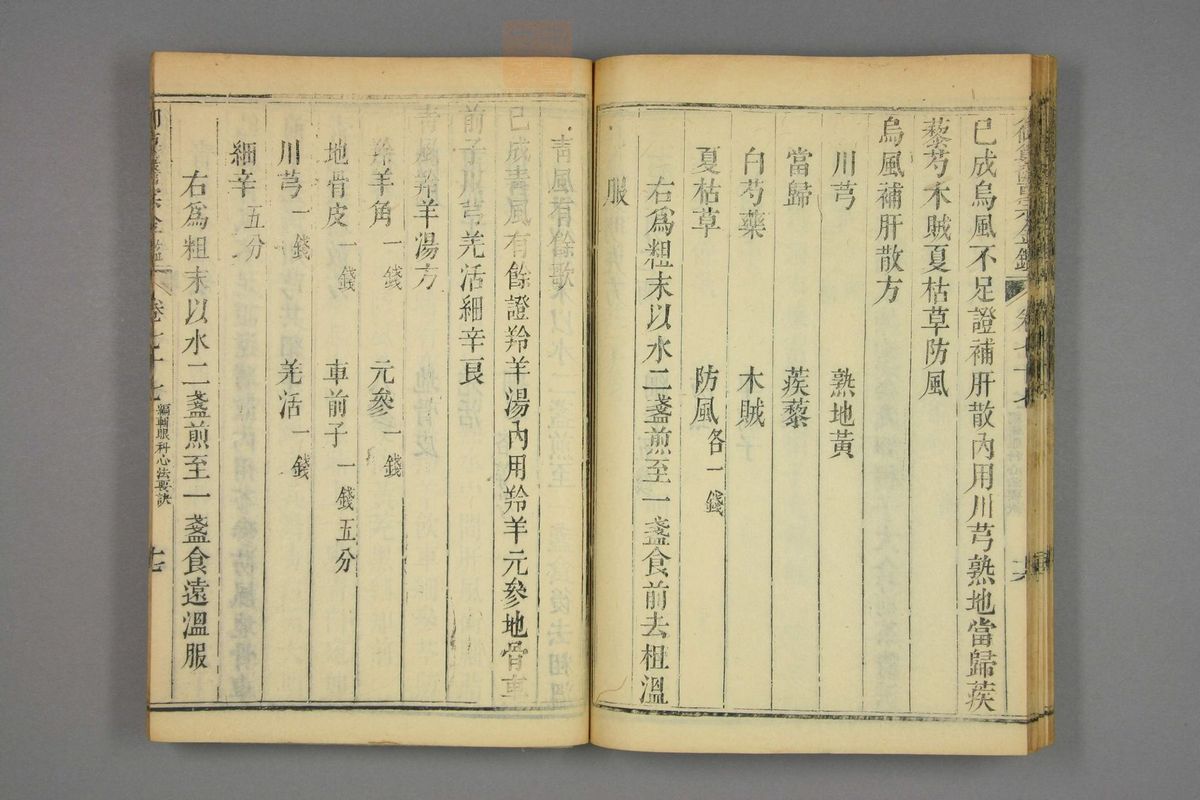 已成烏風不足證補肝散內用川芎熟地當歸蒺
藜芍木賊夏枯草防風
烏風補肝散方
川芎　熟地黃
當歸　蒺藜
白芍藥　木賊
夏枯草　防風各一錢
右爲粗末以水二盞煎至一盞食前去柤溫
服
青風有餘歌
已成青風有餘證羚羊湯內用羚羊元參地骨車
前子川芎羌活細辛良
青風羚羊湯方
羚羊角一錢　元參一錢
地骨皮一錢　車前子一錢五分
川芎一錢　羌活一錢
細辛五分
右爲粗末以水二盞煎至一盞食遠溫服
卷七十七　編輯眼科心法要訣　十七